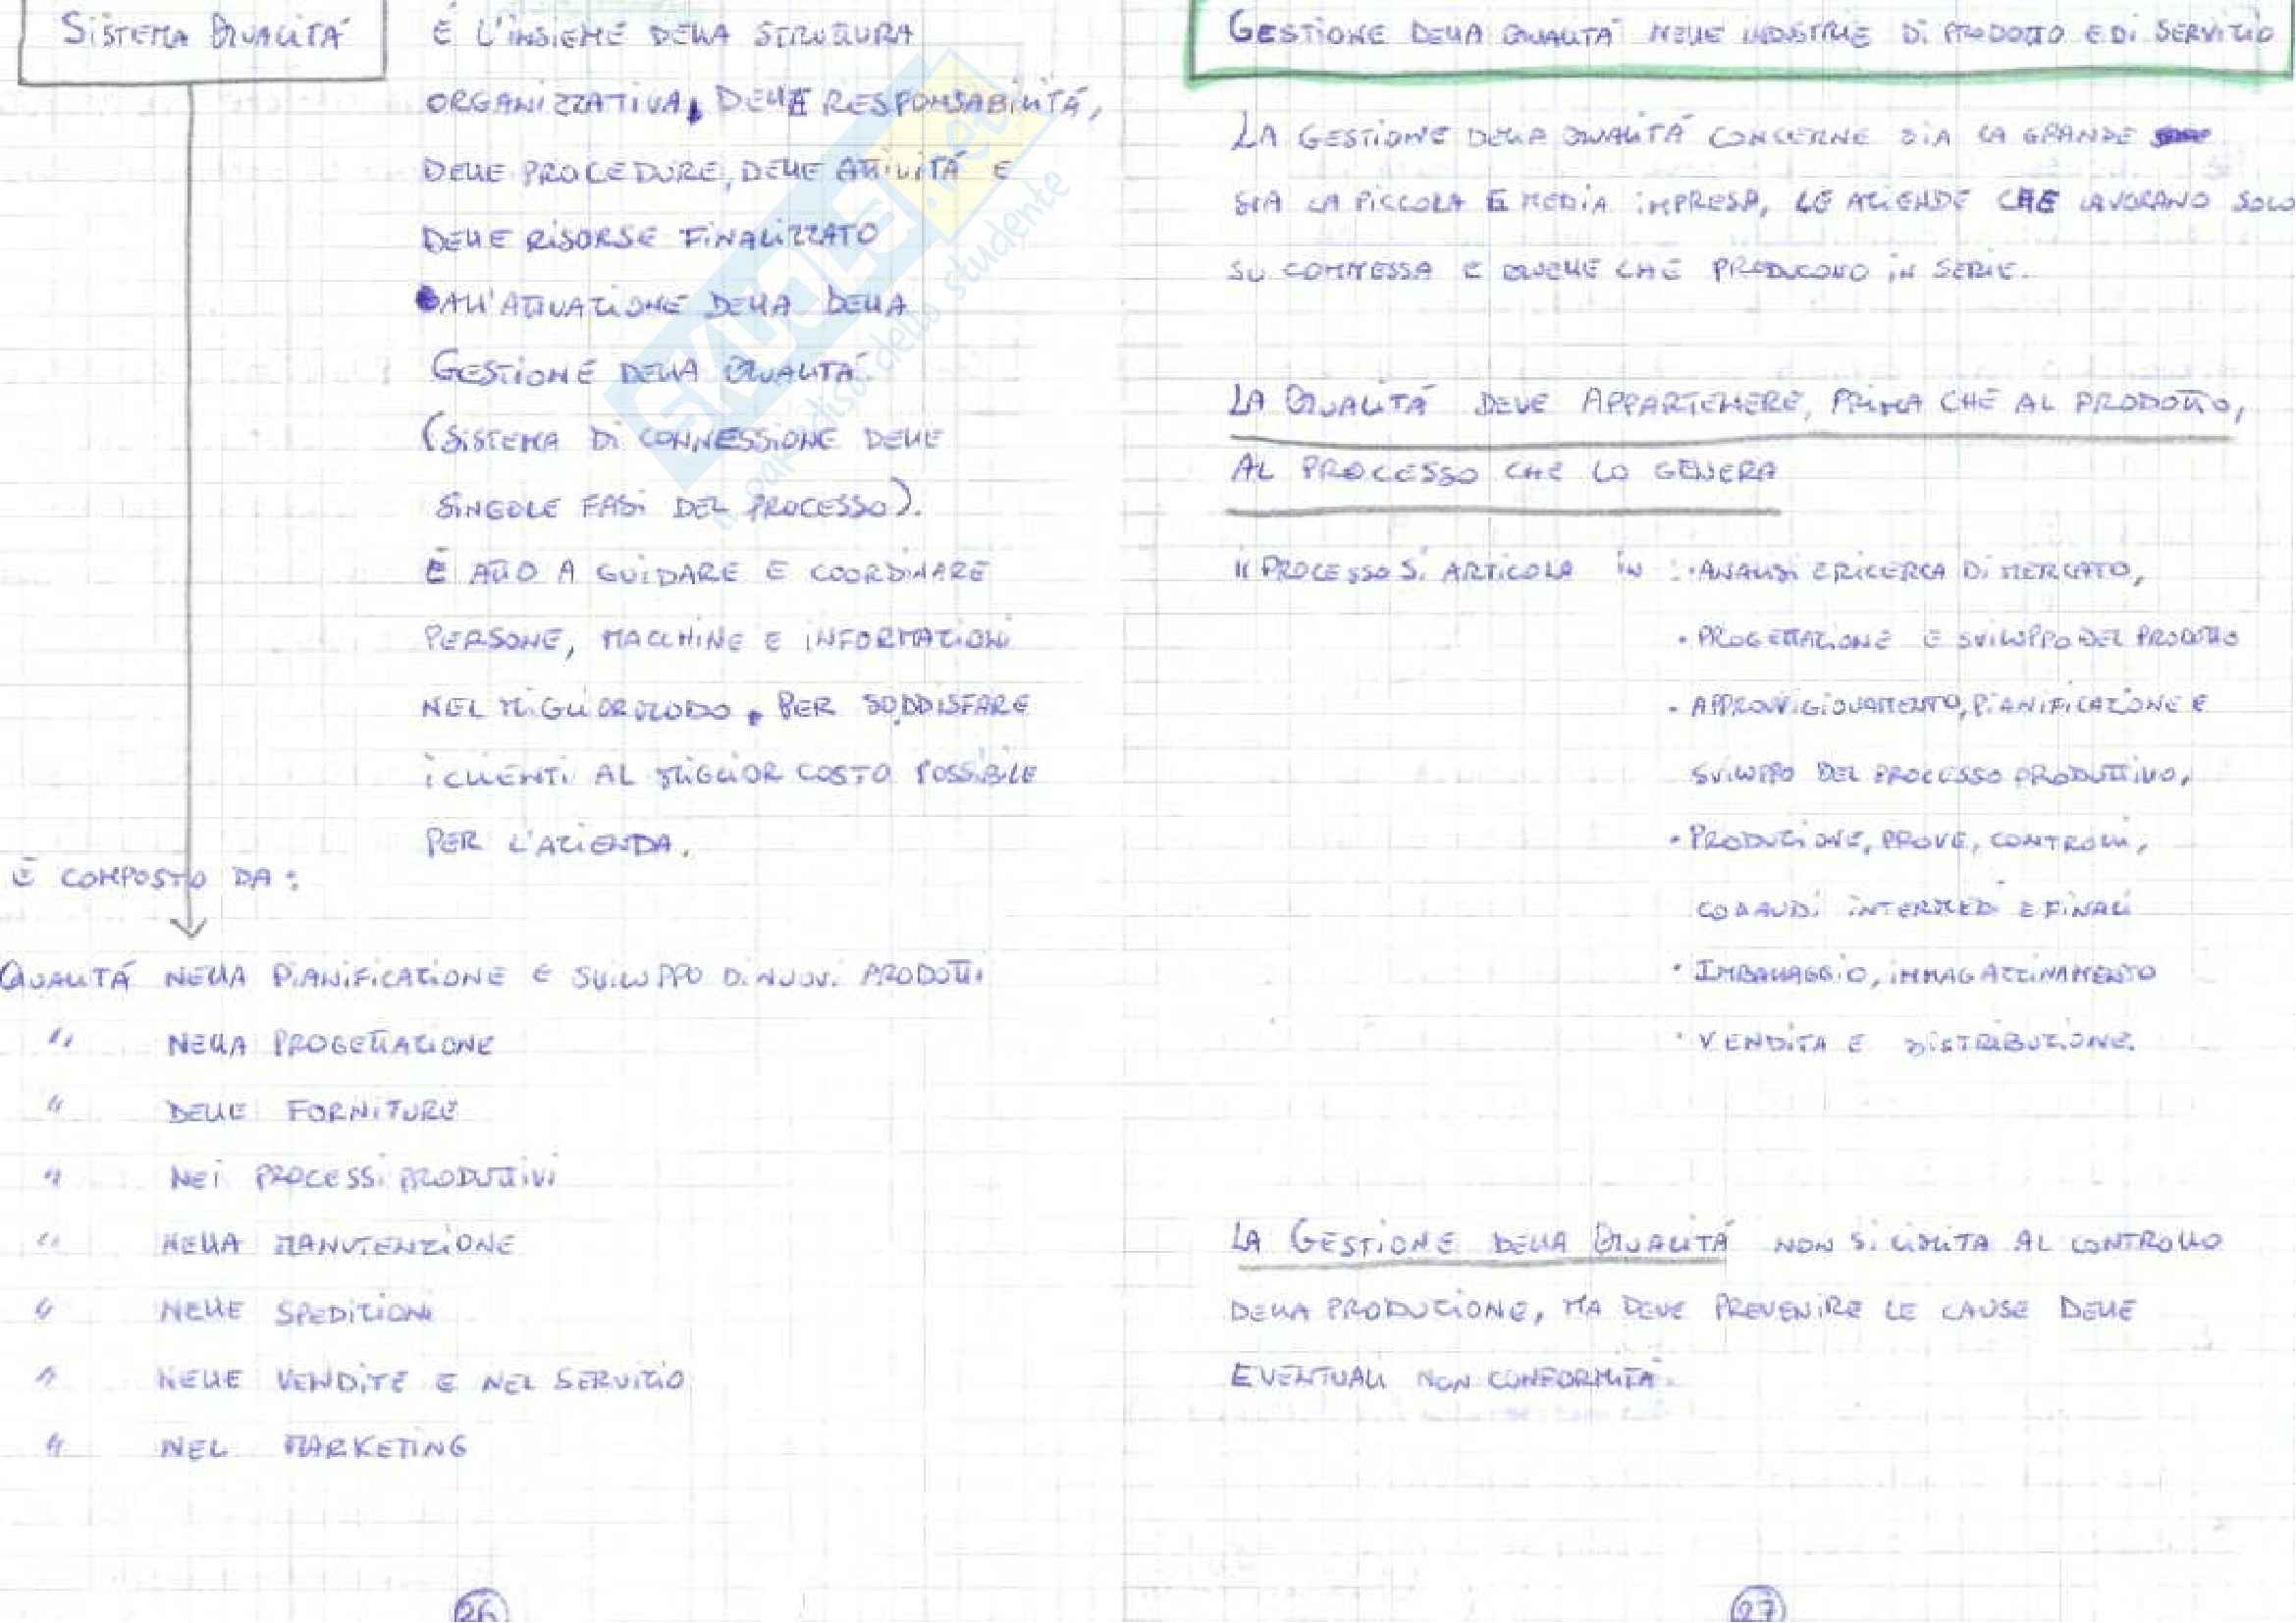 SISTEMA QUALITÁ
É L'INSIEME DELLA STRUTTURA
ORGANIZZATIVA, DELLE RESPONSABILITÁ,
DELLE PROCEDURE, DELLE ATTIVITÁ E
DELLE RISORSE FINALIZZATO
ALL'ATTUAZIONE DELLA DELLA
GESTIONE DELLA QUALITÁ.
(SISTEMA DI CONNESSIONE DELLE
SINGOLE FASI DEL PROCESSO).
É ATTO A GUIDARE E COORDINARE
PERSONE, MACCHINE E INFORMAZIONI
NEL MIGLIOR MODO, PER SODDISFARE
I CLIENTI AL MIGLIOR COSTO POSSIBILE
PER L'AZIENDA.
É COMPOSTO DA:
QUALITÁ NELLA PIANIFICAZIONE E SVILUPPO DI NUOVI PRODOTTI
" NELLA PROGETTAZIONE
" DELLE FORNITURE
" NEI PROCESSI PRODUTTIVI
" NELLA MANUTENZIONE
" NELLE SPEDIZIONI
" NELLE VENDITE E NEL SERVIZIO
" NEL MARKETING
26
GESTIONE DELLA QUALITÁ NELLE INDUSTRIE DI PRODOTTO E DI SERVIZIO
LA GESTIONE DELLA QUALITÁ CONCERNE SIA LA GRANDE
SIA LA PICCOLA E MEDIA IMPRESA, LE AZIENDE CHE LAVORANO SOLO
SU COMMESSA E QUELLE CHE PRODUCONO IN SERIE.
LA QUALITÁ DEVE APPARTENERE, PRIMA CHE AL PRODOTTO,
AL PROCESSO CHE LO GENERA
IL PROCESSO SI ARTICOLA IN : • ANALISI E RICERCA DI MERCATO,
• PROGETTAZIONE E SVILUPPO DEL PRODOTTO
• APPROVVIGIONAMENTO, PIANIFICAZIONE E
SVILUPPO DEL PROCESSO PRODUTTIVO,
• PRODUZIONE, PROVE, CONTROLLI,
COLLAUDI INTERMEDI E FINALI
• IMBALLAGGIO, IMMAGAZZINAMENTO
• VENDITA E DISTRIBUZIONE.
LA GESTIONE DELLA QUALITÁ NON SI LIMITA AL CONTROLLO
DELLA PRODUZIONE, MA DEVE PREVENIRE LE CAUSE DELLE
EVENTUALI NON CONFORMITÁ.
27
SKUOLA.net
il paradiso dello studente